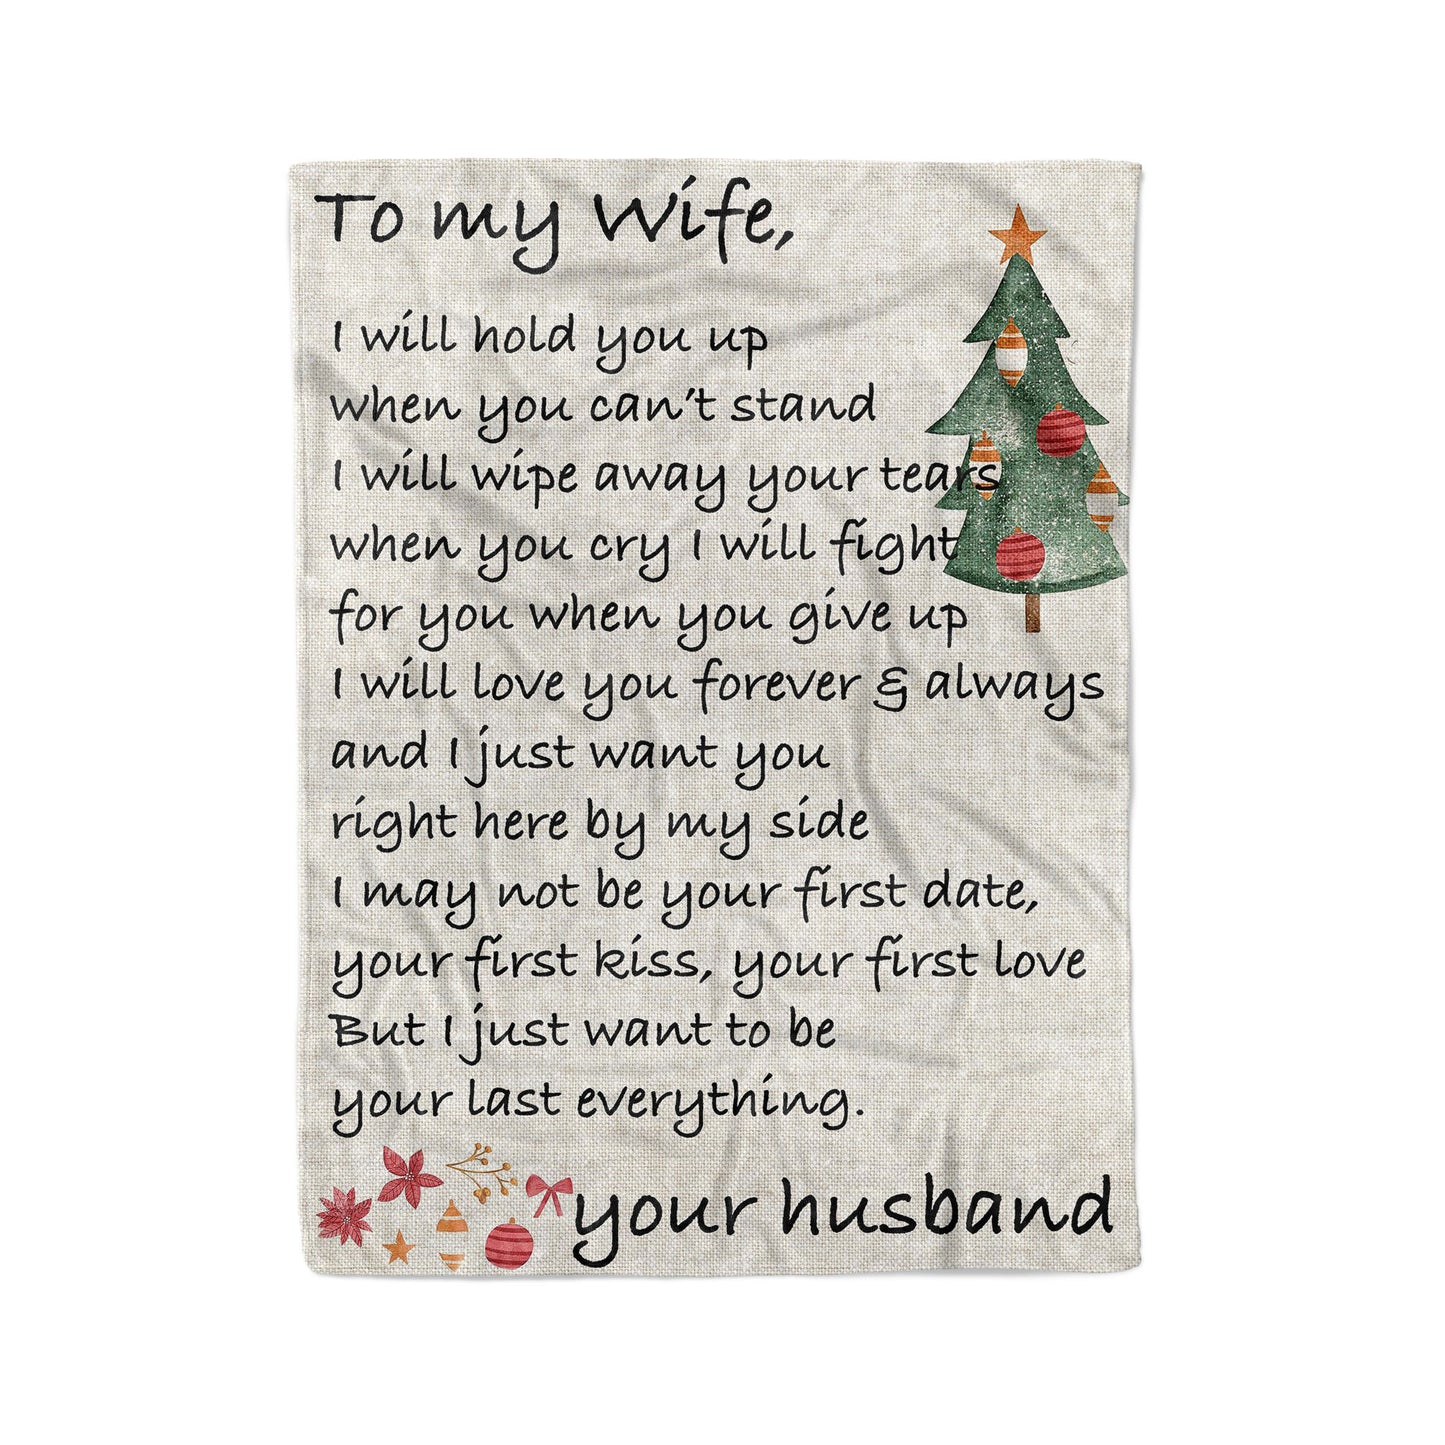 To my Wife,
I will hold you up
when you can't stand
I will wipe away your tears
when you cry I will fight
for you when you give up
I will love you forever & always
and I just want you
right here by my side
I may not be your first date,
your first kiss, your first love
But I just want to be
your last everything.
your husband